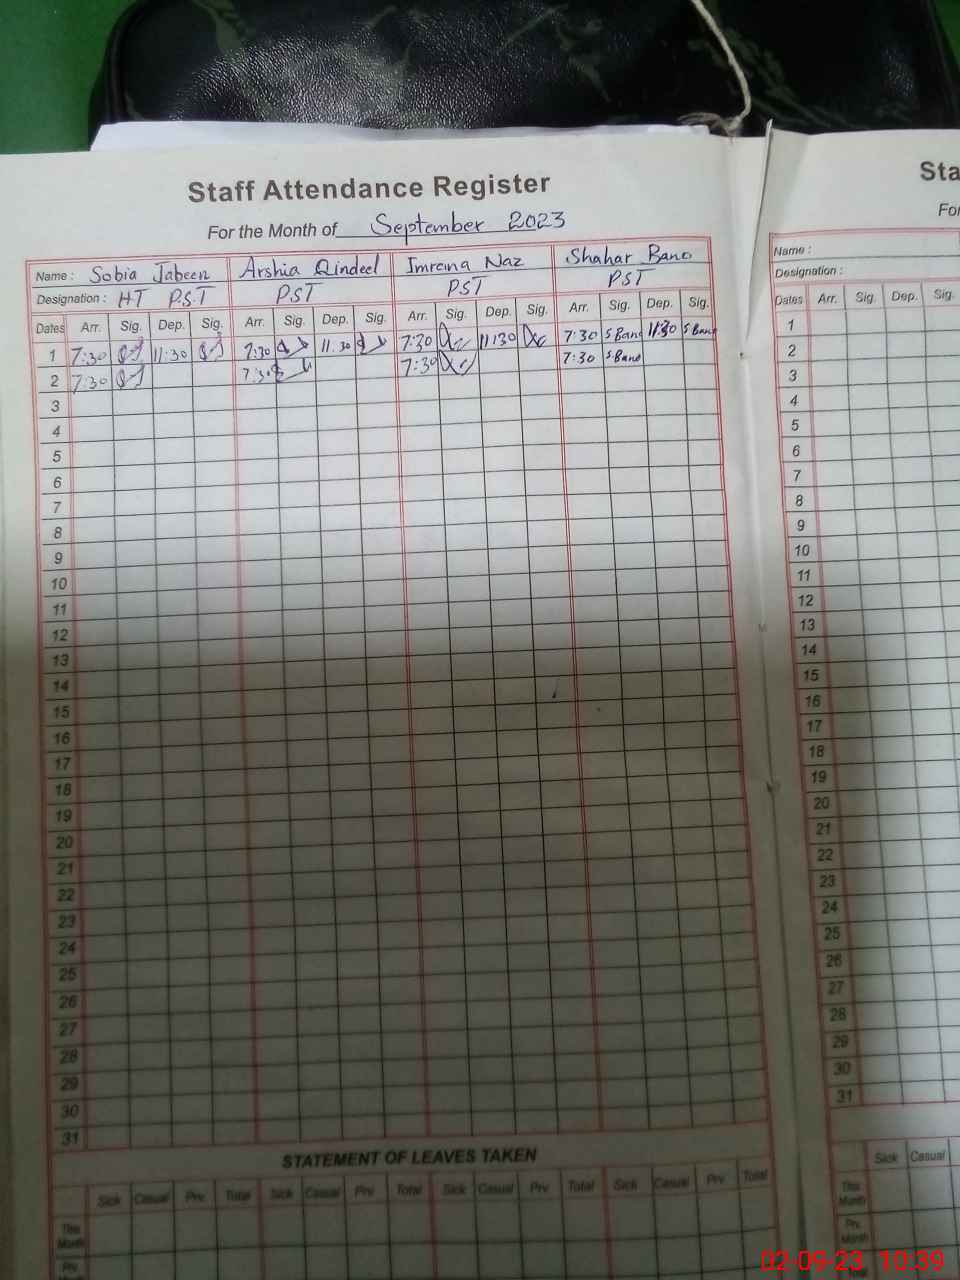 Staff Attendance Register
For the Month of September 2023
Name : Sobia Jabeen Arshia Qindeel Imrana Naz Shahar Bano
Designation : HT P.S.T P.S.T P.S.T P.S.T
Dates Arr. Sig. Dep. Sig. Arr. Sig. Dep. Sig. Arr. Sig. Dep. Sig. Arr. Sig. Dep. Sig.
1 7:30 11:30 7:30 11:30 7:30 11:30 7:30 S Bano 11:30 S Bano
2 7:30 7:30 7:30 7:30 S Bano
3
4
5
6
7
8
9
10
11
12
13
14
15
16
17
18
19
20
21
22
23
24
25
26
27
28
29
30
31
STATEMENT OF LEAVES TAKEN
Sick Casual Prv Total Sick Casual Prv Total Sick Casual Prv Total Sick Casual Prv Total
This
Month
Prv
Month
Sta
For
Name :
Designation :
Dates Arr. Sig. Dep. Sig.
1
2
3
4
5
6
7
8
9
10
11
12
13
14
15
16
17
18
19
20
21
22
23
24
25
26
27
28
29
30
31
Sick Casual
This
Month
Prv.
Month
02-09-23 10:39